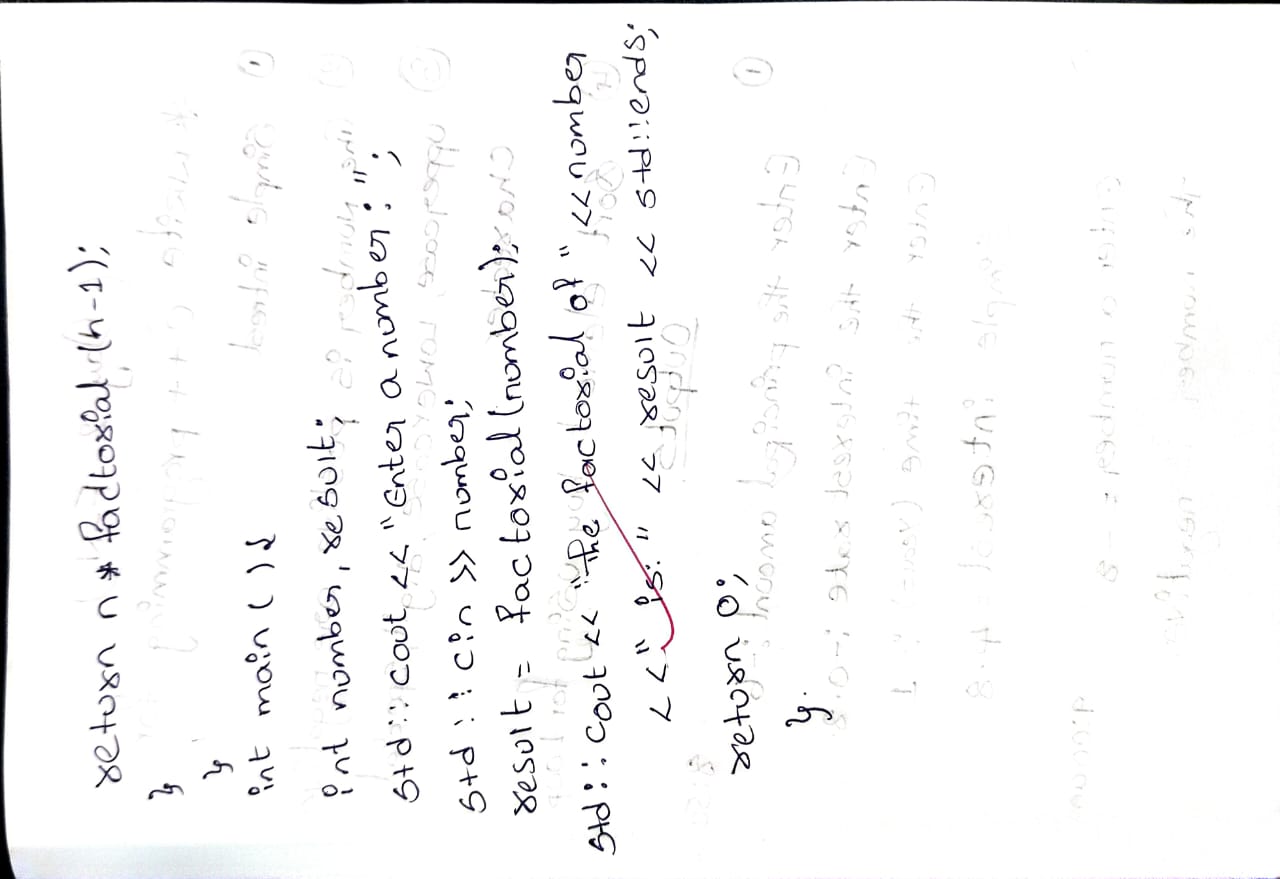 return n * factorial (n-1);
}
}
int main ( ) {
int number, result;
std :: cout << "Enter a number : ";
std :: cin >> number;
result = factorial (number);
std :: cout << "The factorial of " << number
<< " is: " << result << std::ends;
return 0;
}.